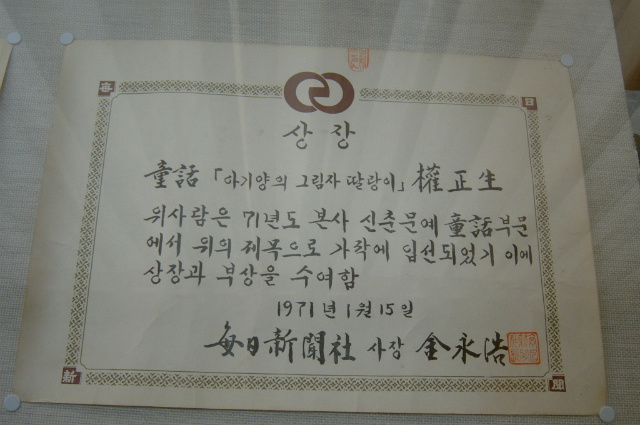 每 日
상장
童話 「아기양의 그림자 딸랑이」 權正生
위사람은 71년도 본사 신춘문예 童話부문
에서 위의 제목으로 가작에 입선되었기 이에
상장과 부상을 수여함
1971년 1월 15일
每日新聞社 사장 金永浩
新 聞